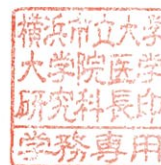 横浜市立大学
大学院医学
研究科長印
学務専用